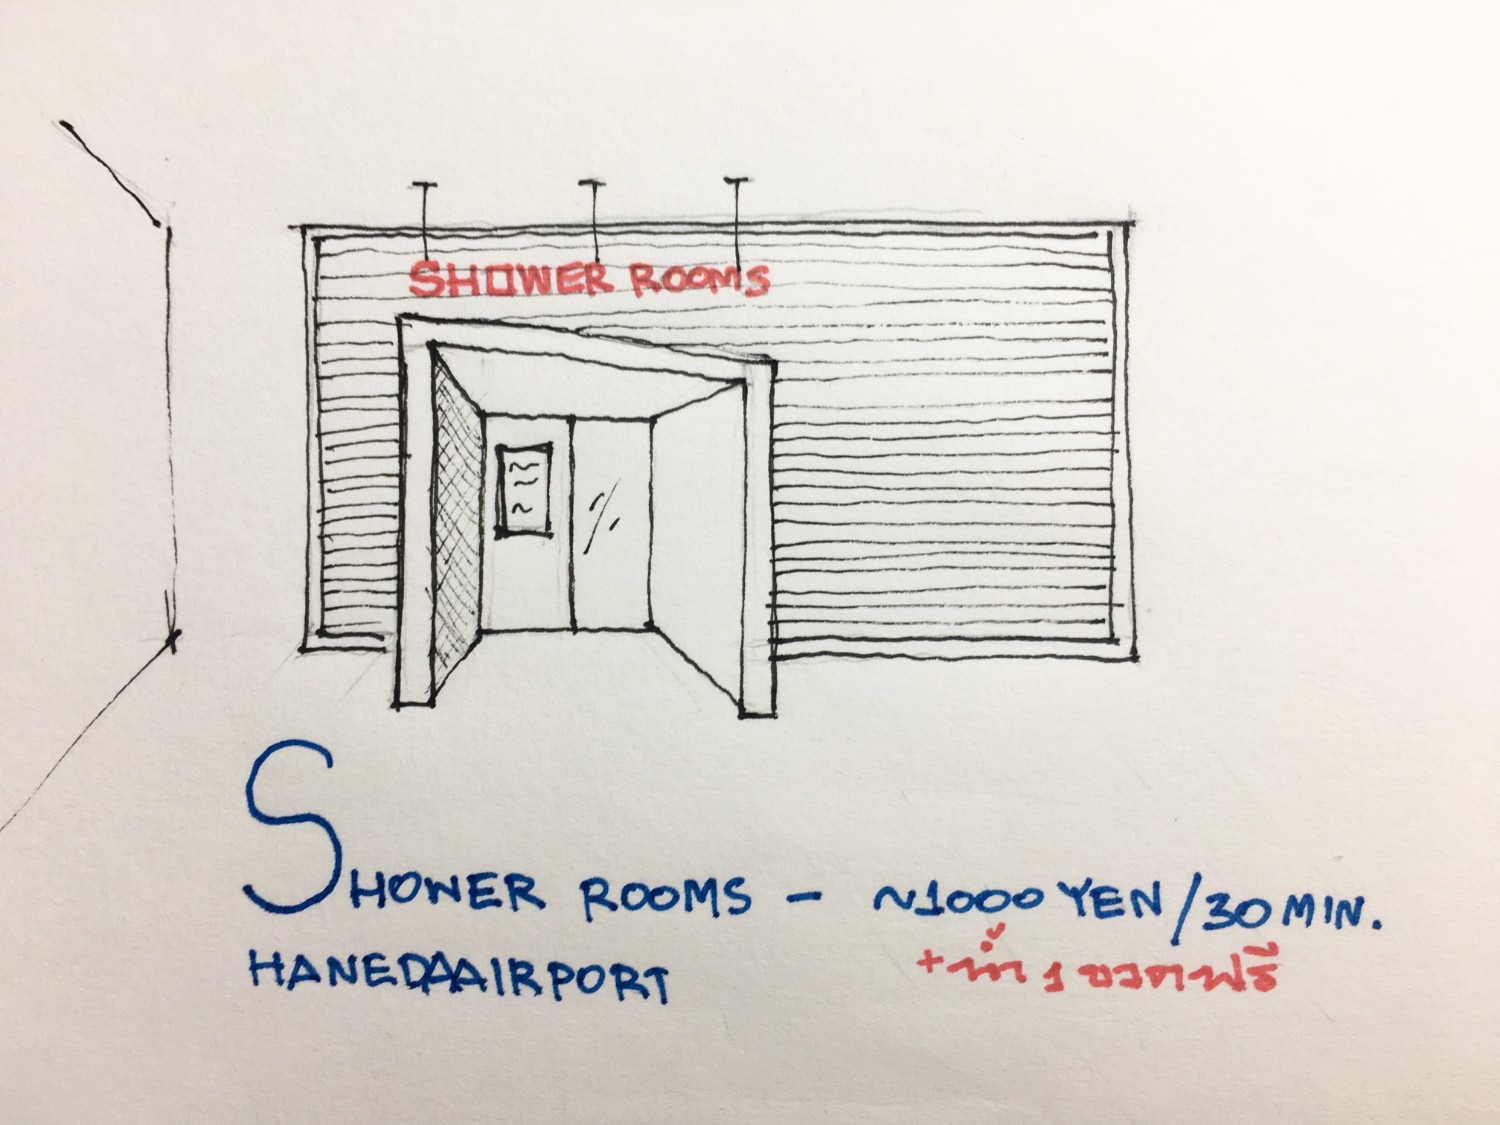 SHOWER ROOMS
SHOWER ROOMS - ~1000 YEN/30 MIN.
+น้ำ 1 ขวดฟรี
HANEDA AIRPORT